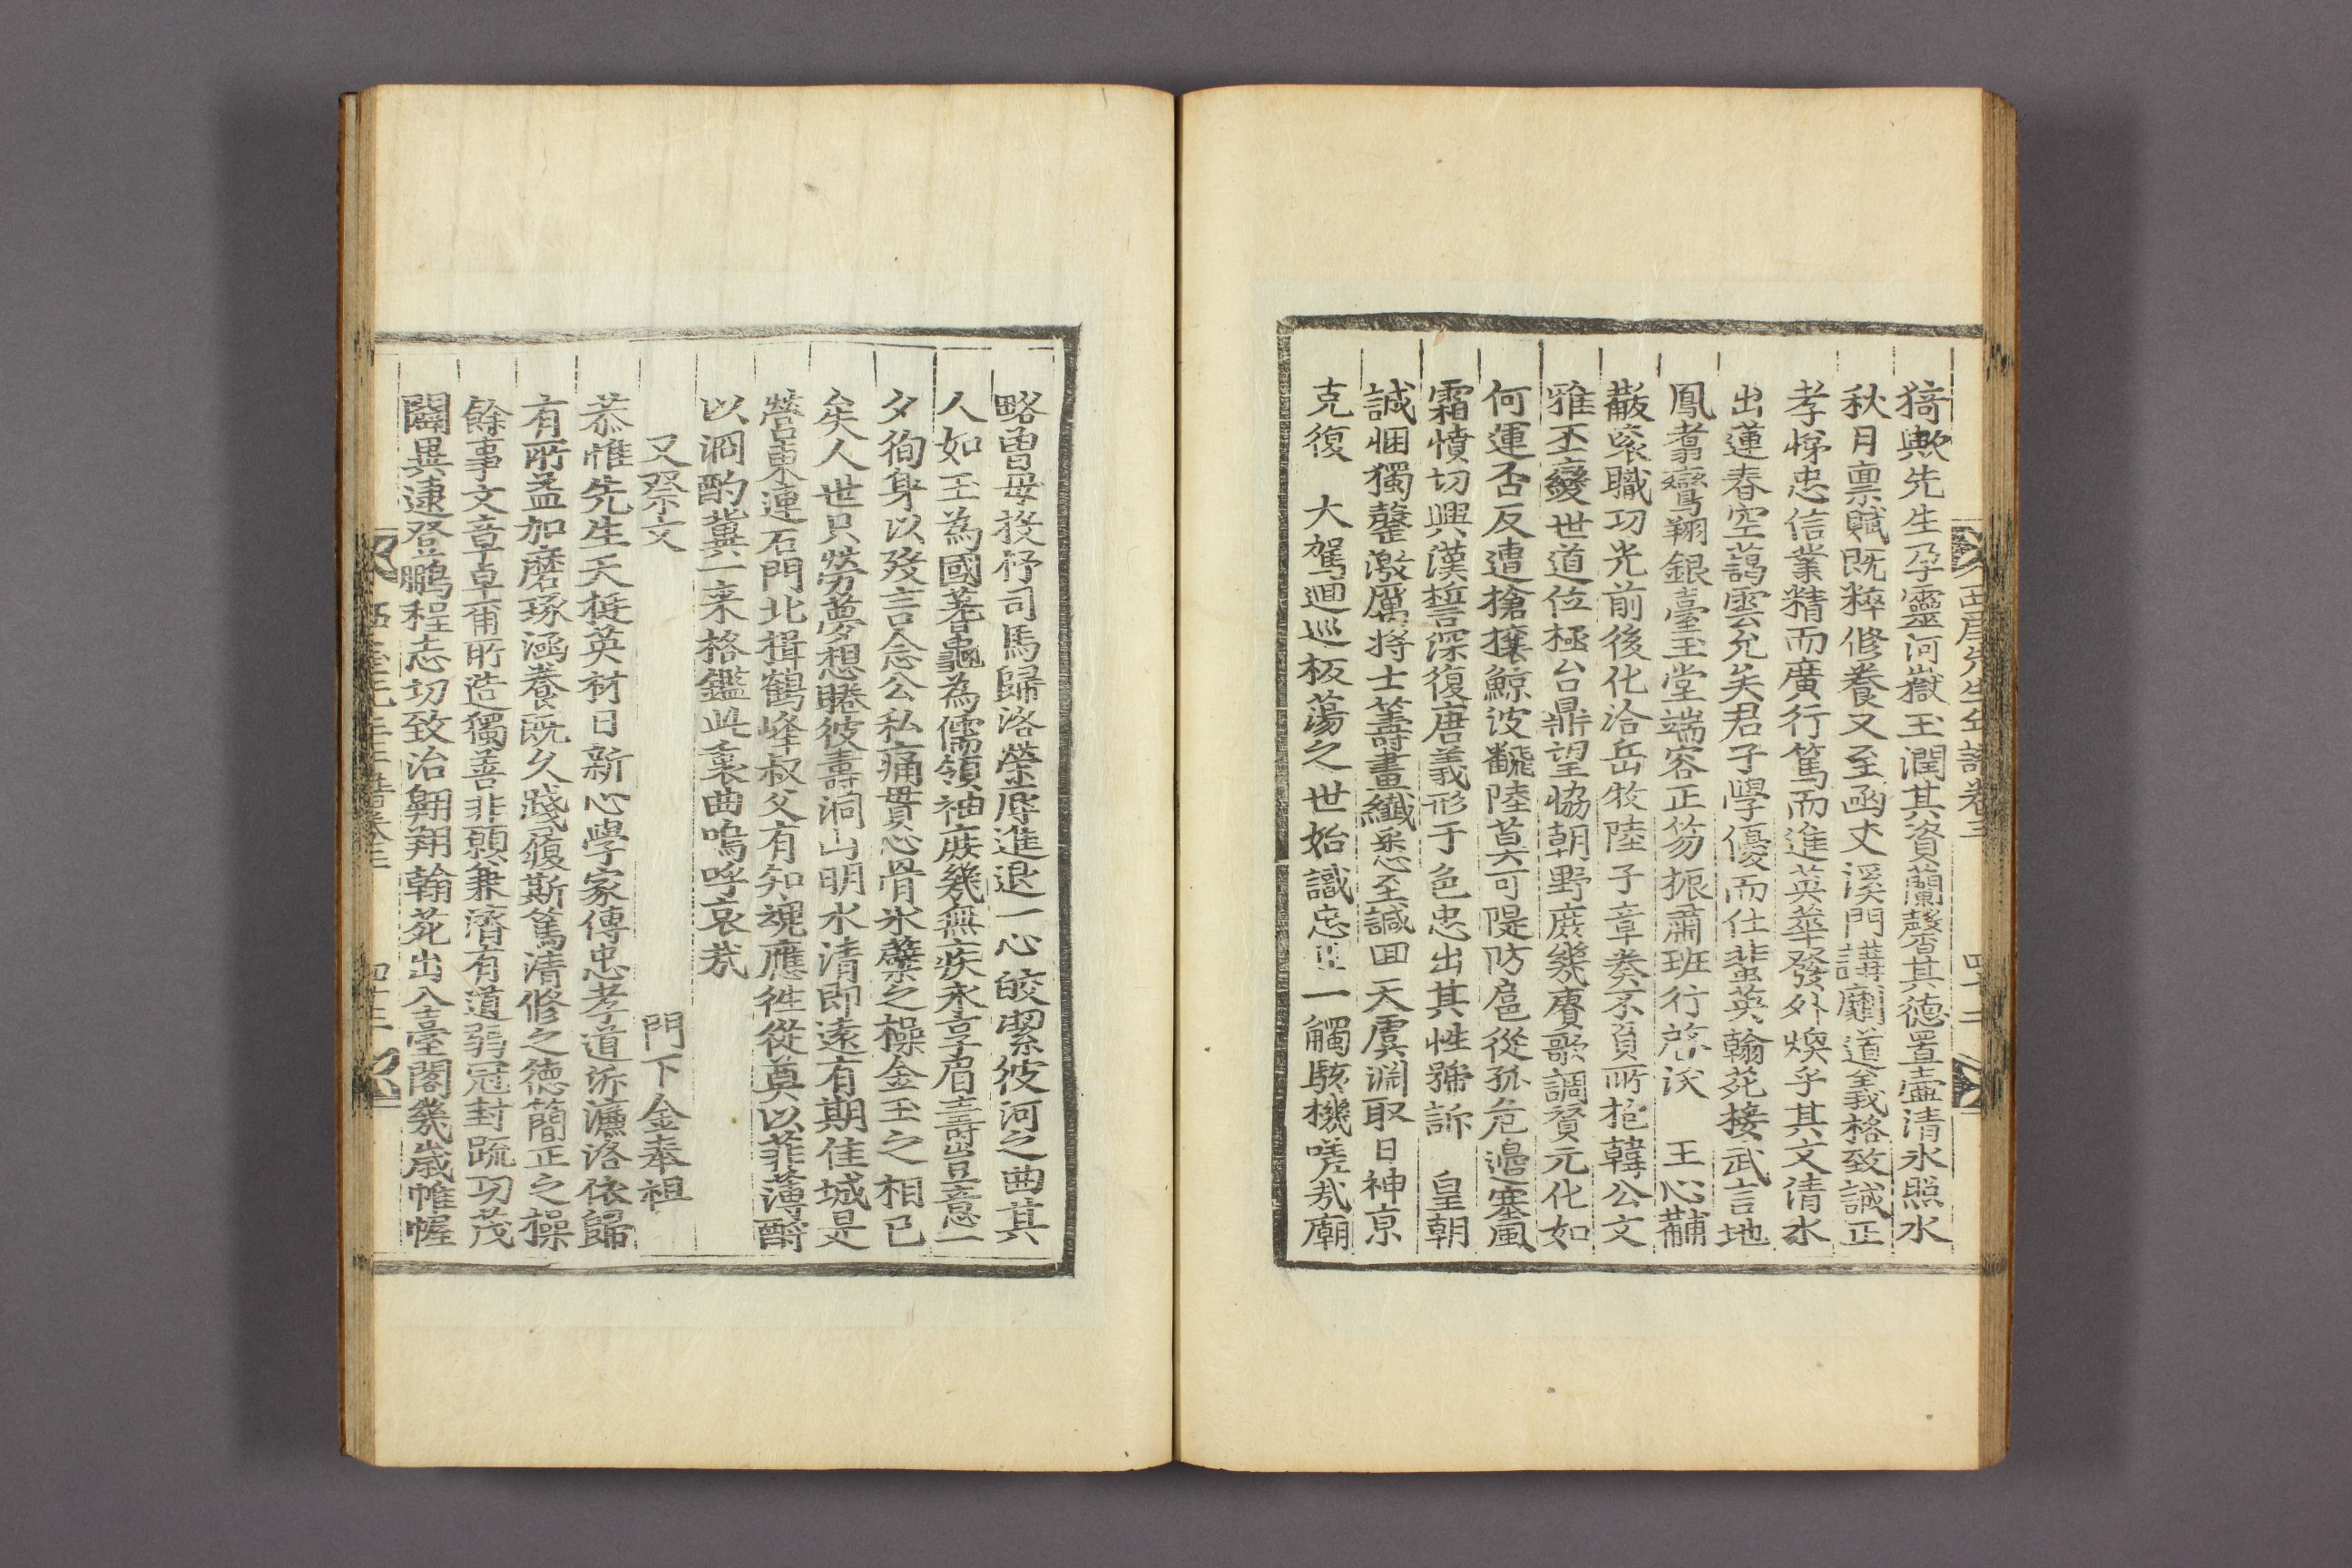 西厓先生年譜卷三　四十二
猗歟先生孕靈河嶽玉潤其資蘭馨其德置壺清氷照水
秋月禀賦既粹修養又至函丈溪門講劘道義格致誠正
孝悌忠信業精而廣行篤而進英華發外煥乎其文清水
出蓮春空藹雲允矣君子學優而仕蜚英翰苑接武言地
鳳翥鸞翔銀臺玉堂端容正笏振肅班行啓沃　王心黼
黻袞職功光前後化洽岳牧陸子章奏不負所抱韓公文
雅丕變世道位極台鼎望協朝野庶幾賡歌調賛元化如
何運否反遭搶攘鯨波飜陸莫可隄防扈從孤危邊塞風
霜憤切興漢誓深復唐義形于色忠出其性號訴　皇朝
誠悃獨罄激厲將士籌畫纖悉至諴回天虞淵取日神京
克復　大駕廻巡板蕩之世始識忠　一觸駭機嗟哉廟
略曾母投杼司馬歸洛榮辱進退一心皎潔彼河之曲其
人如玉為國蓍龜為儒領袖庶幾無疾永享眉壽豈意一
夕徇身以歿言念公私痛貫心骨氷蘖之操金玉之相已
矣人世只勞夢想睠彼壽洞山明水清卽遠有期佳城是
營東連石門北揖鶴峰叔父有知魂應徃從奠以菲薄酹
以泂酌冀一来格鑑此衷曲嗚呼哀哉
又祭文　門下金奉祖
恭惟先生天挺英材日新心學家傳忠孝道泝濂洛依歸
有所益加磨琢涵養既久踐履斯篤清修之德簡正之操
餘事文章卓甭所造獨善非願兼濟有道弱冠封䟽功茂
闢異逮登鵬程志切致治翺翔翰苑出入臺閣幾歲帷幄